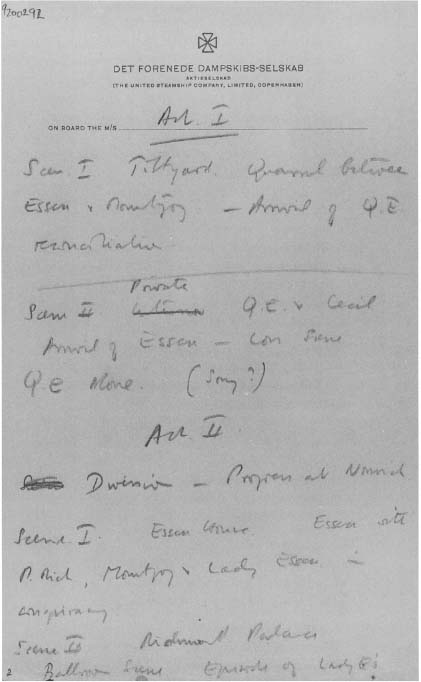 9200292
DET FORENEDE DAMPSKIBS-SELSKAB
AKTIESELSKAB
(THE UNITED STEAMSHIP COMPANY, LIMITED, COPENHAGEN)
ON BOARD THE M/S Act. I
Scen. I Tiltyard. Quarrel between
Essex & Mountjoy – Arrival of Q.E
reconciliation.
Private
Scene II Q.E. & Cecil
Arrival of Essex – Love Scene
QE alone. (Song?)
Act. II
Diversion – Progress at Norwich
Scene I. Essex House. Essex with
P. Rich, Mountjoy & Lady Essex –
conspiracy
Scene II Richmond Palace
2 Ballroom Scene Episode of Lady E's